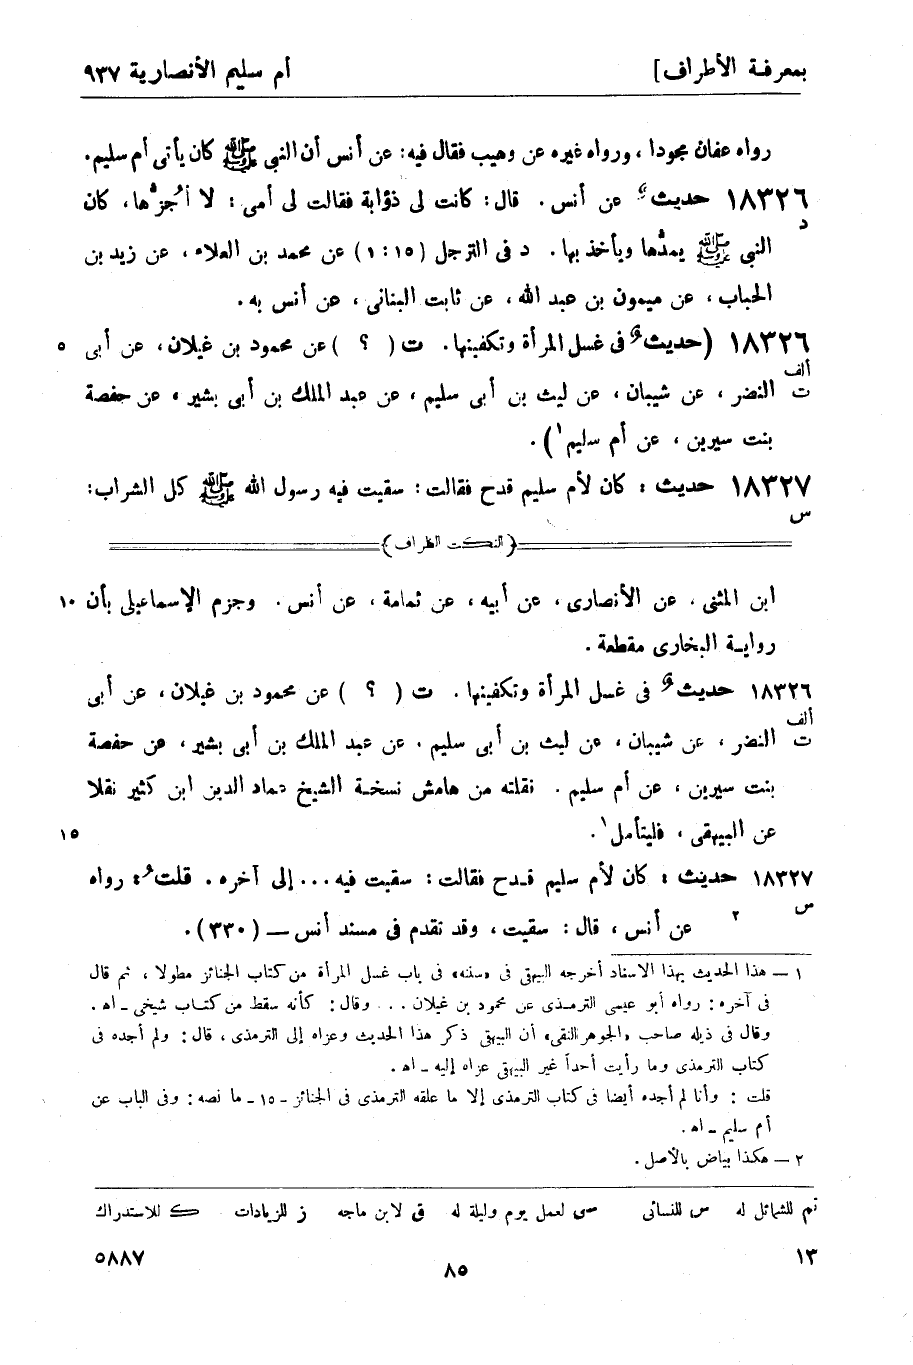 بمعرفة الأطراف] أم سليم الأنصارية ٩٣٧
رواه عفان مجودا ، ورواه غيره عن وهيب فقال فيه : عن أنس أن النبي ﷺ كان يأتى أم سليم .
١٨٣٢٦ حديث عن أنس . قال : كانت لى ذؤابة فقالت لى أمى : لا أجُزُّها ، كان
د
النبي ﷺ يمدُّها ويأخذ بها . د فى الترجل (١٥ : ١) عن محمد بن العلاء ، عن زيد بن
الحباب ، عن ميمون بن عبد الله ، عن ثابت البنانى ، عن أنس به .
١٨٣٢٦ (حديث فى غسل المرأة وتكفينها . ت ( ؟ ) عن محمود بن غيلان ، عن أبى ٥
ألف
ت النضر ، عن شيبان ، عن ليث بن أبى سليم ، عن عبد الملك بن أبى بشير ، عن حفصة
بنت سيرين ، عن أم سليم ١) .
١٨٣٢٧ حديث : كان لأم سليم قدح فقالت : سقيت فيه رسول الله ﷺ كل الشراب :
س
(النكت الظراف)
ابن المثنى ، عن الأنصارى ، عن أبيه ، عن ثمامة ، عن أنس . وجزم الإسماعيلى بأن ١٠
رواية البخارى مقطعة .
١٨٣٢٦ حديث فى غسل المرأة وتكفينها . ت ( ؟ ) عن محمود بن غيلان ، عن أبى
ألف
ت النضر ، عن شيبان ، عن ليث بن أبى سليم . عن عبد الملك بن أبى بشير ، عن حفصة
بنت سيرين ، عن أم سليم . نقلته من هامش نسخة الشيخ عماد الدين ابن كثير نقلا
عن البيهقى ، فليتأمل ١ . ١٥
١٨٣٢٧ حديث : كان لأم سليم قدح فقالت : سقيت فيه ... إلى آخره . قلت : رواه
س
٢ عن أنس ، قال : سقيت ، وقد تقدم فى مسند أنس ــ (٣٣٠) .
١ ــ هذا الحديث بهذا الاسناد أخرجه البيهقى فى «سننه» فى باب غسل المرأة من كتاب الجنائز مطولا ، ثم قال
فى آخره : رواه أبو عيسى الترمذى عن محمود بن غيلان ... وقال : كأنه سقط من كتاب شيخى ـ اه .
وقال فى ذيله صاحب «الجوهر النقى» أن البيهقى ذكر هذا الحديث وعزاه إلى الترمذى ، قال : ولم أجده فى
كتاب الترمذى وما رأيت أحداً غير البيهقى عزاه إليه ـ اه .
قلت : وأنا لم أجده أيضا فى كتاب الترمذى إلا ما علقه الترمذى فى الجنائز ـ ١٥ ـ ما نصه : وفى الباب عن
أم سليم ـ اه .
٢ ــ هكذا بياض بالأصل .
تم للشمائل له س للنسائى سى لعمل يوم وليلة له ق لابن ماجه ز للزيادات ك للاستدراك
١٣ ٨٥ ٥٨٨٧